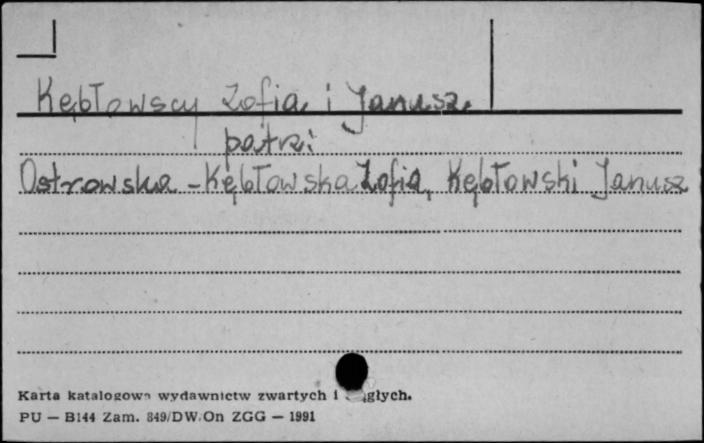 Kębłowscy Zofia i Janusz.
patrz:
Ostrowska-Kębłowska Zofia, Kębłowski Janusz
Karta katalogowa wydawnictw zwartych i ciągłych.
PU — B144 Zam. 849/DW/On ZGG — 1991